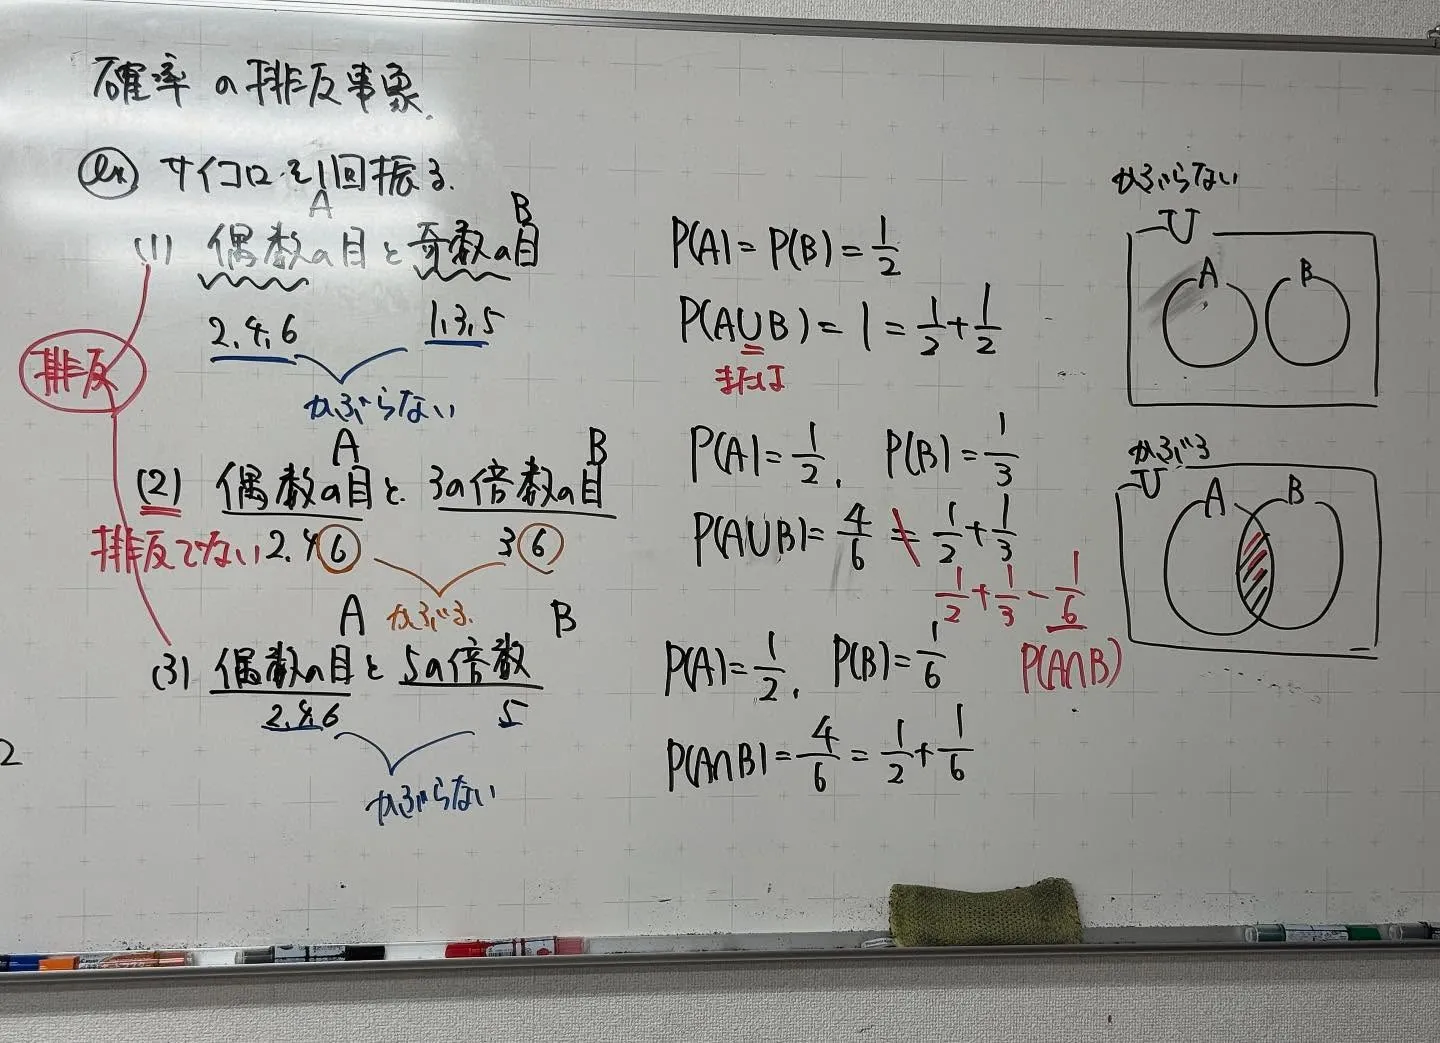 確率の排反事象
ex サイコロを1回振る.
A B
(1) 偶数の目と奇数の目
2,4,6 1,3,5
かぶらない
排反
A B
(2) 偶数の目と 3の倍数の目
排反でない 2.4 6 3 6
かぶる
A B
(3) 偶数の目と5の倍数
2,4,6 5
かぶらない
2
P(A) = P(B) = 1/2
P(A∪B) = 1 = 1/2 + 1/2
または
P(A) = 1/2, P(B) = 1/3
P(A∪B) = 4/6 ≠ 1/2 + 1/3
1/2 + 1/3 - 1/6
P(A∩B)
P(A) = 1/2, P(B) = 1/6
P(A∩B) = 4/6 = 1/2 + 1/6
かぶらない
U
A B
かぶる
U
A B